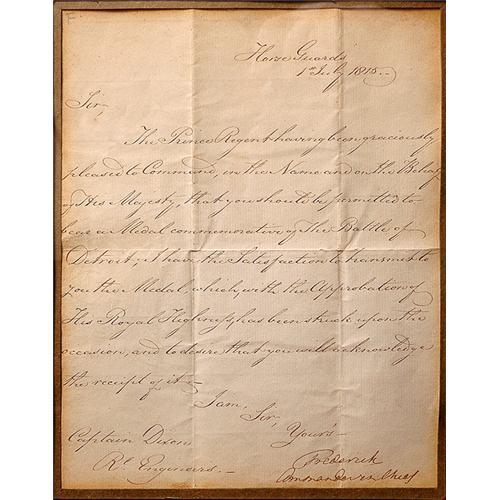 Horse Guards
1st July 1815.
Sir,
The Prince Regent having been graciously
pleased to Command, in the Name and on the Behalf
of His Majesty, that you should be permitted to
bear a Medal commemorative of The Battle of
Detroit; I have the Satisfaction to transmit to
you the Medal, which, with the Approbation of
His Royal Highness, has been struck upon the
occasion, and to desire that you will acknowledge
the receipt of it –
I am,
Sir,
Yours –
Captain Dixon
Rl. Engineers. –
Frederick
Commander in Chief